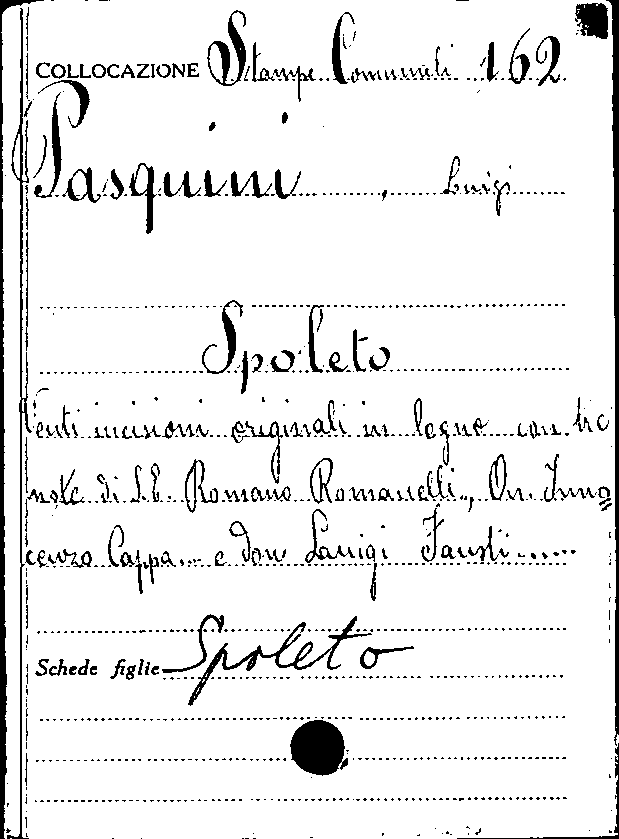 COLLOCAZIONE Stampe Comunali 162
Pasquini, Luigi
Spoleto
Venti incisioni originali in legno con tre
note di S.E. Romano Romanelli.., On. Inno=
cenzo Cappa... e don Luigi Fausti......
Schede figlie Spoleto